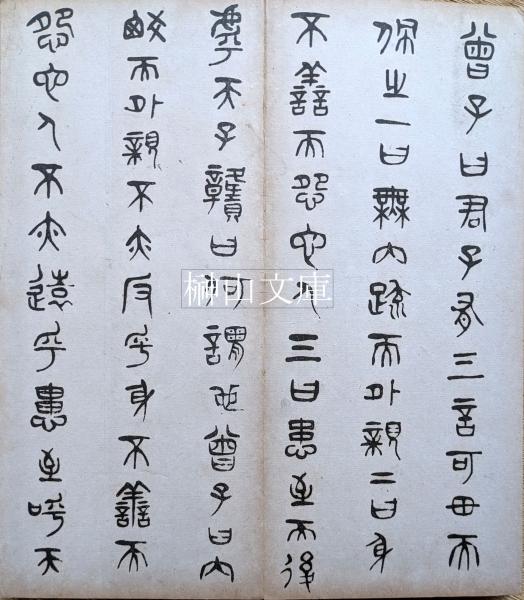 曾子曰君子有三言可毌而
佩之一曰無内疏而外親二曰身
不善而怨它人三曰患至而後
虖天子贛曰何謂也曾子曰内
疏而外親不亦反乎身不善而
怨它人不亦遠乎患至呼天
榊山文庫